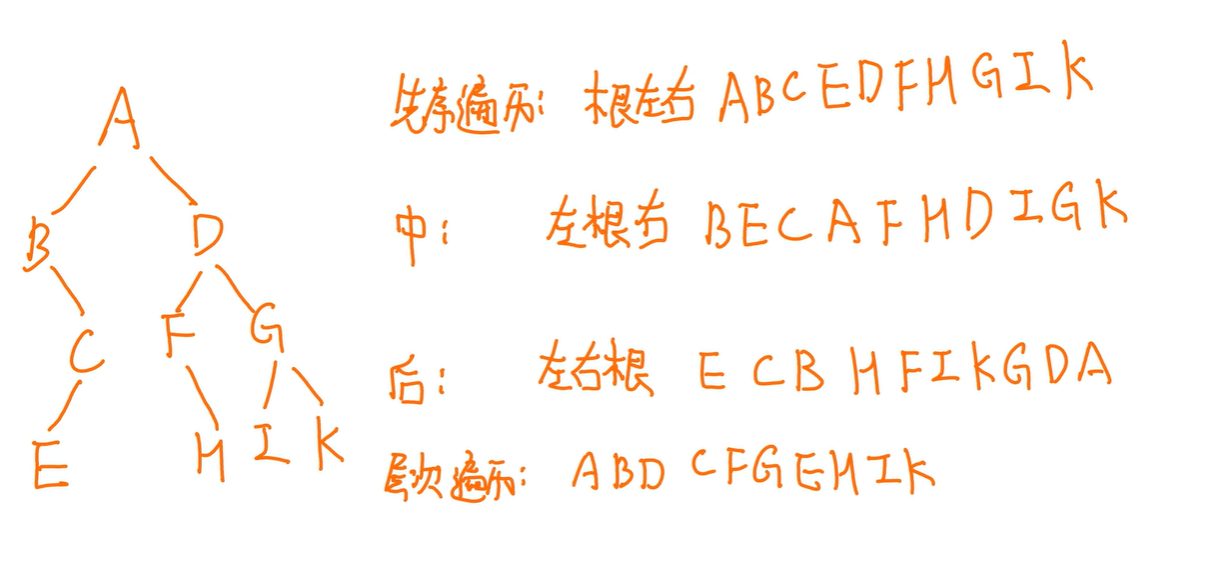 A
B D
C F G
E H I K
先序遍历: 根左右 ABCEDFHGIK
中: 左根右 BECAFHDIGK
后: 左右根 ECBHFIKGDA
层次遍历: ABDCFGEHIK